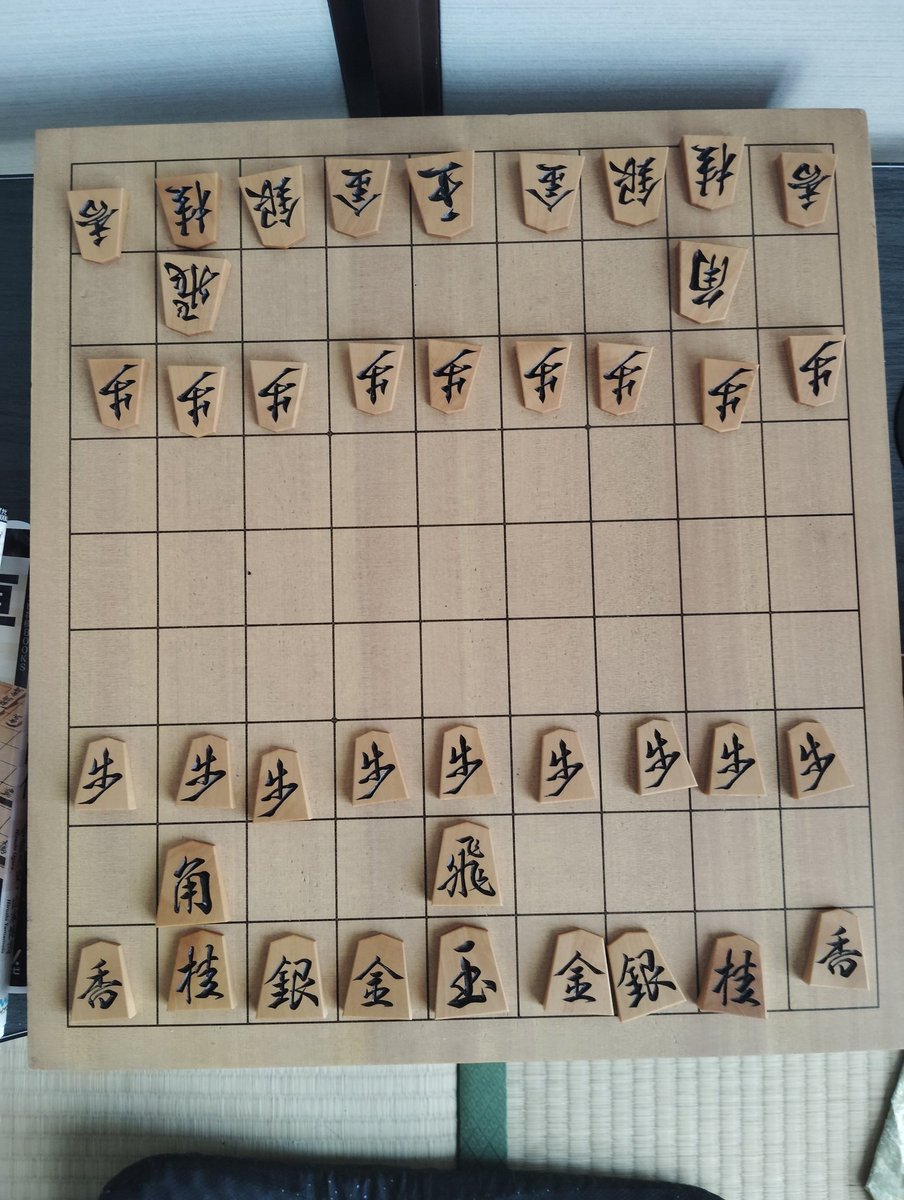 香桂銀金玉金銀桂香
飛角
歩歩歩歩歩歩歩歩歩
歩歩歩歩歩歩歩歩歩
角飛
香桂銀金玉金銀桂香